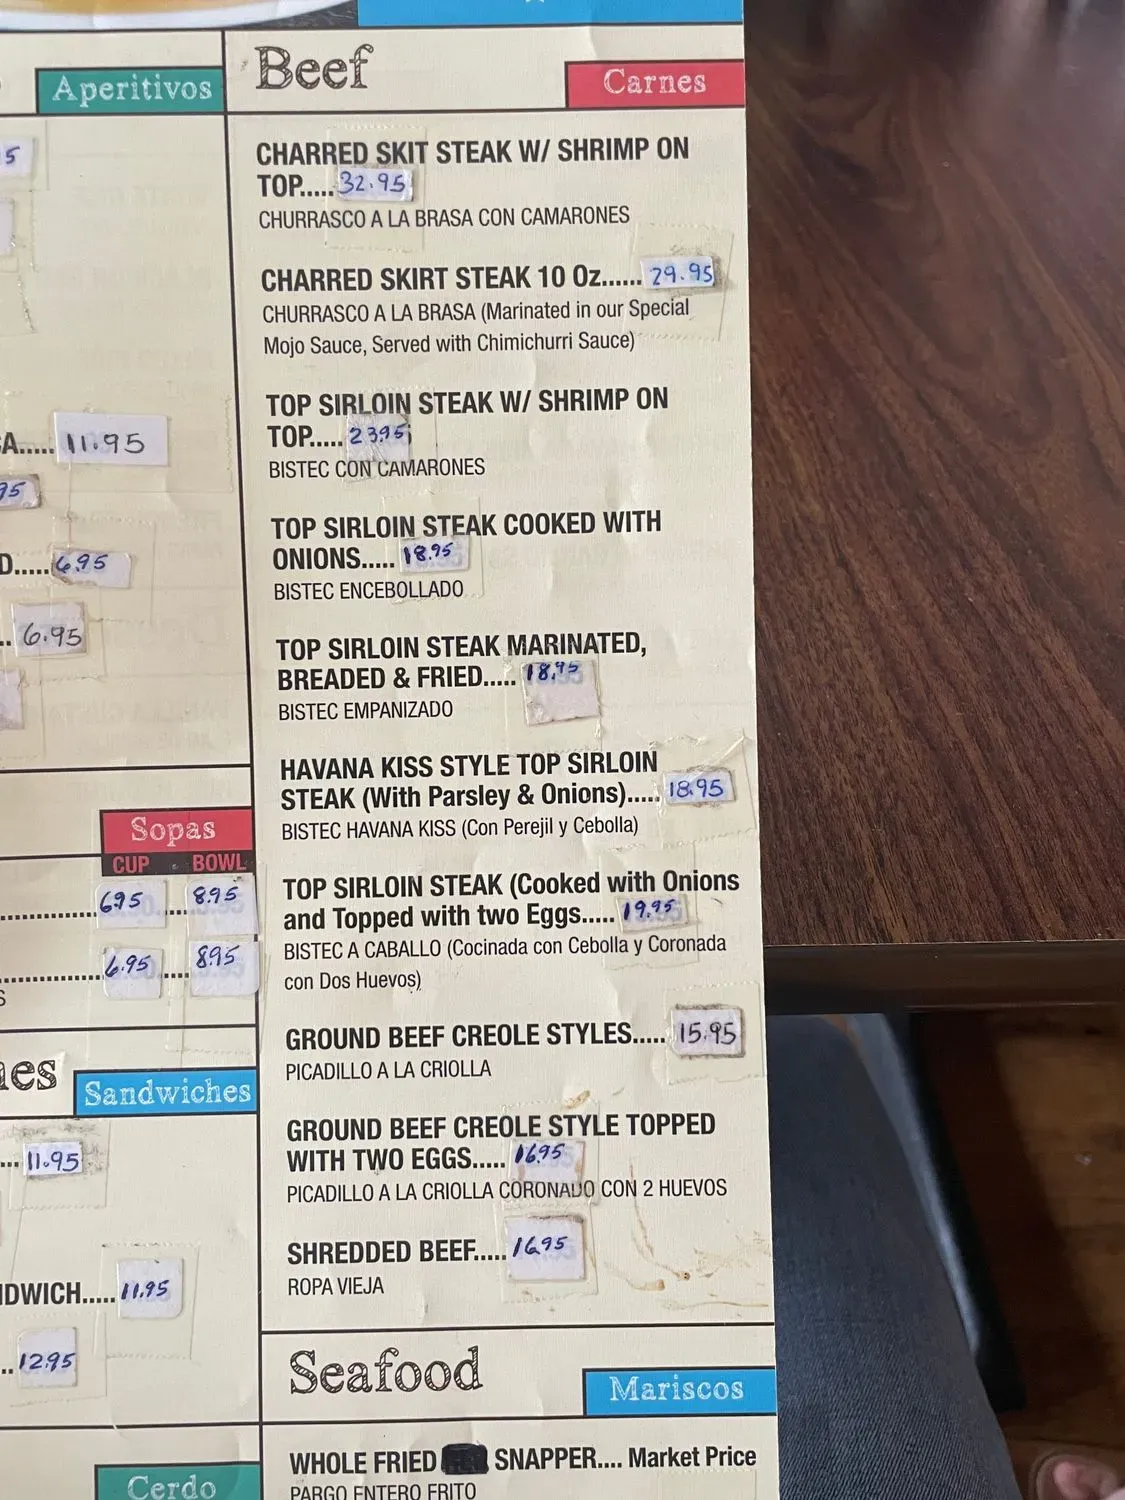 Aperitivos
5
A..... 11.95
95
D..... 6.95
.. 6.95
Sopas
CUP . BOWL
6.95 ..... 8.95
6.95 ..... 8.95
S
es
Sandwiches
... 11.95
DWICH..... 11.95
.. 12.95
Cerdo
Beef
Carnes
CHARRED SKIT STEAK W/ SHRIMP ON
TOP..... 32.95
CHURRASCO A LA BRASA CON CAMARONES
CHARRED SKIRT STEAK 10 Oz...... 29.95
CHURRASCO A LA BRASA (Marinated in our Special
Mojo Sauce, Served with Chimichurri Sauce)
TOP SIRLOIN STEAK W/ SHRIMP ON
TOP..... 23.95
BISTEC CON CAMARONES
TOP SIRLOIN STEAK COOKED WITH
ONIONS..... 18.95
BISTEC ENCEBOLLADO
TOP SIRLOIN STEAK MARINATED,
BREADED & FRIED..... 18.95
BISTEC EMPANIZADO
HAVANA KISS STYLE TOP SIRLOIN
STEAK (With Parsley & Onions)..... 18.95
BISTEC HAVANA KISS (Con Perejil y Cebolla)
TOP SIRLOIN STEAK (Cooked with Onions
and Topped with two Eggs..... 19.95
BISTEC A CABALLO (Cocinada con Cebolla y Coronada
con Dos Huevos)
GROUND BEEF CREOLE STYLES..... 15.95
PICADILLO A LA CRIOLLA
GROUND BEEF CREOLE STYLE TOPPED
WITH TWO EGGS..... 16.95
PICADILLO A LA CRIOLLA CORONADO CON 2 HUEVOS
SHREDDED BEEF..... 16.95
ROPA VIEJA
Seafood
Mariscos
WHOLE FRIED SNAPPER.... Market Price
PARGO ENTERO FRITO